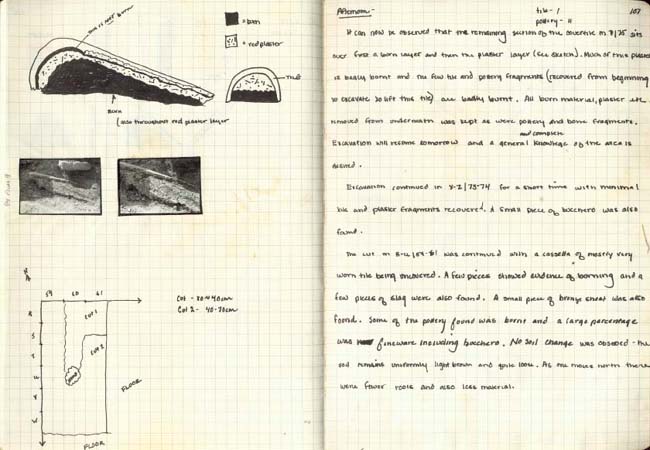 This is not burnt
= burn
= red plaster
TILE
BURN
(also throughout red plaster layer
59 60 61
R
S
T
U
V
W
CUT 1
CUT 2
Cut 2 - 40-70cm
FLOOR
FLOOR
Afternoon -
tile - 1
pottery - 11
107
It can now be observed that the remaining section of the covertile in 8/75 sits
over first a burn layer and then the plaster layer (see sketch). Much of this plaster
is badly burnt and the few tile and pottery fragments (recovered from beginning
to excavate to lift this tile) are badly burnt. All burn material, plaster etc.
removed from underneath was kept as were pottery and bone fragments.
and complete
Excavation will resume tomorrow and a general knowledge of the area is
Excavation continued in 73-74 for a short time with minimal
tile and plaster fragments recovered. A small piece of bucchero was also
found.
The cut in was continued with a cassetta of mostly very
worn tile being uncovered. A few pieces showed evidence of burning and a
few pieces of slag were also found. A small piece of bronze sheet was also
found. Some of the pottery found was burnt and a large percentage
was fineware including bucchero. No soil change was observed - the
soil remains uniformly light brown and quite loose. As one moves north there
were fewer roots and also less material.